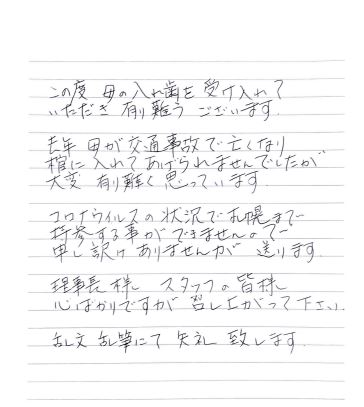 この度 母の入れ歯を受け入れて
いただき 有り難う ございます。
去年 母が交通事故で亡くなり
棺に入れてあげられませんでしたが
大変 有り難く思っています。
コロナウイルスの状況で札幌まで
持参する事ができませんので
申し訳けありませんが 送ります。
理事長様 スタッフの皆様
心ばかりですが 召し上がって下さい。
乱文 乱筆にて 失礼 致します。